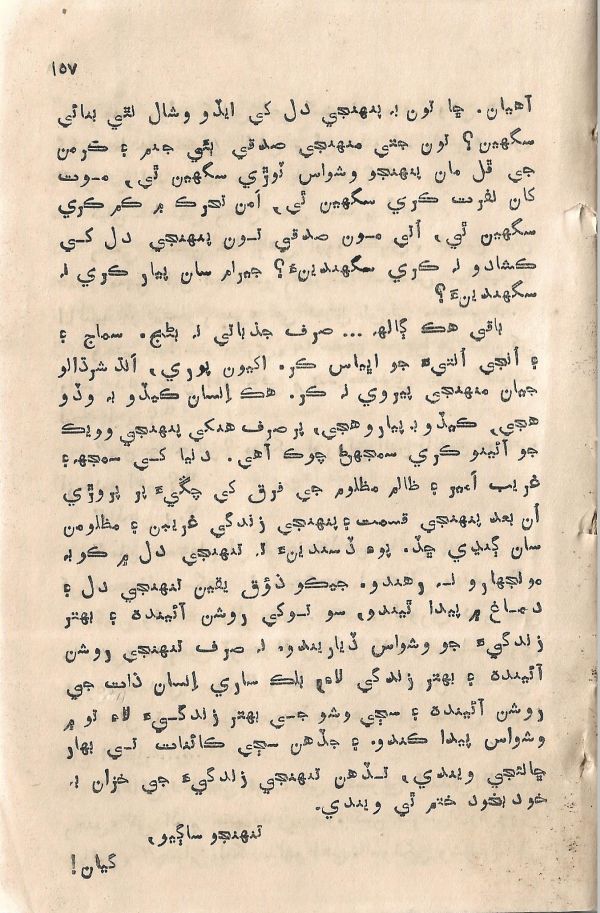 ١٥٧
آهيان. ڇا تون بہ پنهنجي دل کي ايڏو وشال نٿي بنائي
سگهين؟ تون جتي منهنجي صدقي ٻئي جنم ۽ ڪرمن
جي ڦل مان پنهنجو وشواس ٽوڙي سگهين ٿي، موت
کان نفرت ڪري سگهين ٿي، اَمن تحرڪ ۾ ڪم ڪري
سگهين ٿي، اُتي مون صدقي تون پنهنجي دل کي
ڪشادو نہ ڪري سگهندينءَ؟ جيرام سان پيار ڪري نہ
سگهندينءَ؟
باقي هڪ ڳالهہ ... صرف جذباتي نہ بڻجج. سماج ۽
۽ اُنجي اُنتيءَ جو اڀياس ڪر. اکيون پوري، اَنڌ شرڌالو
جيان منهنجي پيروي نہ ڪر. هڪ اِنسان ڪيڏو بہ وڏو
هجي، ڪيڏو بہ پيارو هجي، پر صرف هنکي پنهنجي وويڪ
جو آئينو ڪري سمجهڻ چوڪ آهي. دنيا کي سمجهہ ۽
غريب اَمير ۽ ظالم مظلوم جي فرق کي چڱيءَ پر پروڙي
اُن بعد پنهنجي قسمت ۽ پنهنجي زندگي غريبن ۽ مظلومن
سان ڳنڍي ڇڏ. پوءِ ڏسندينءَ تہ تنهنجي دل ۾ ڪو بہ
مونجهارو نہ رهندو. جيڪو ذوق يقين تنهنجي دل ۽
دماغ ۾ پيدا ٿيندو، سو توکي روشن آئينده ۽ بهتر
زندگيءَ جو وشواس ڏياريندو. نہ صرف تنهنجي روشن
آئينده ۽ بهتر زندگي لاءِ، بلڪ ساري اِنسان ذات جي
روشن آئينده ۽ سڄي وشو جي بهتر زندگيءَ لاءِ تو ۾
وشواس پيدا ڪندو. ۽ جڏهن سڄي ڪائنات تي بهار
ڇانئجي ويندي، تڏهن تنهنجي زندگيءَ جي خزان بہ
خود بخود ختم ٿي ويندي.
تنهنجو ساڳيو،
گيان!